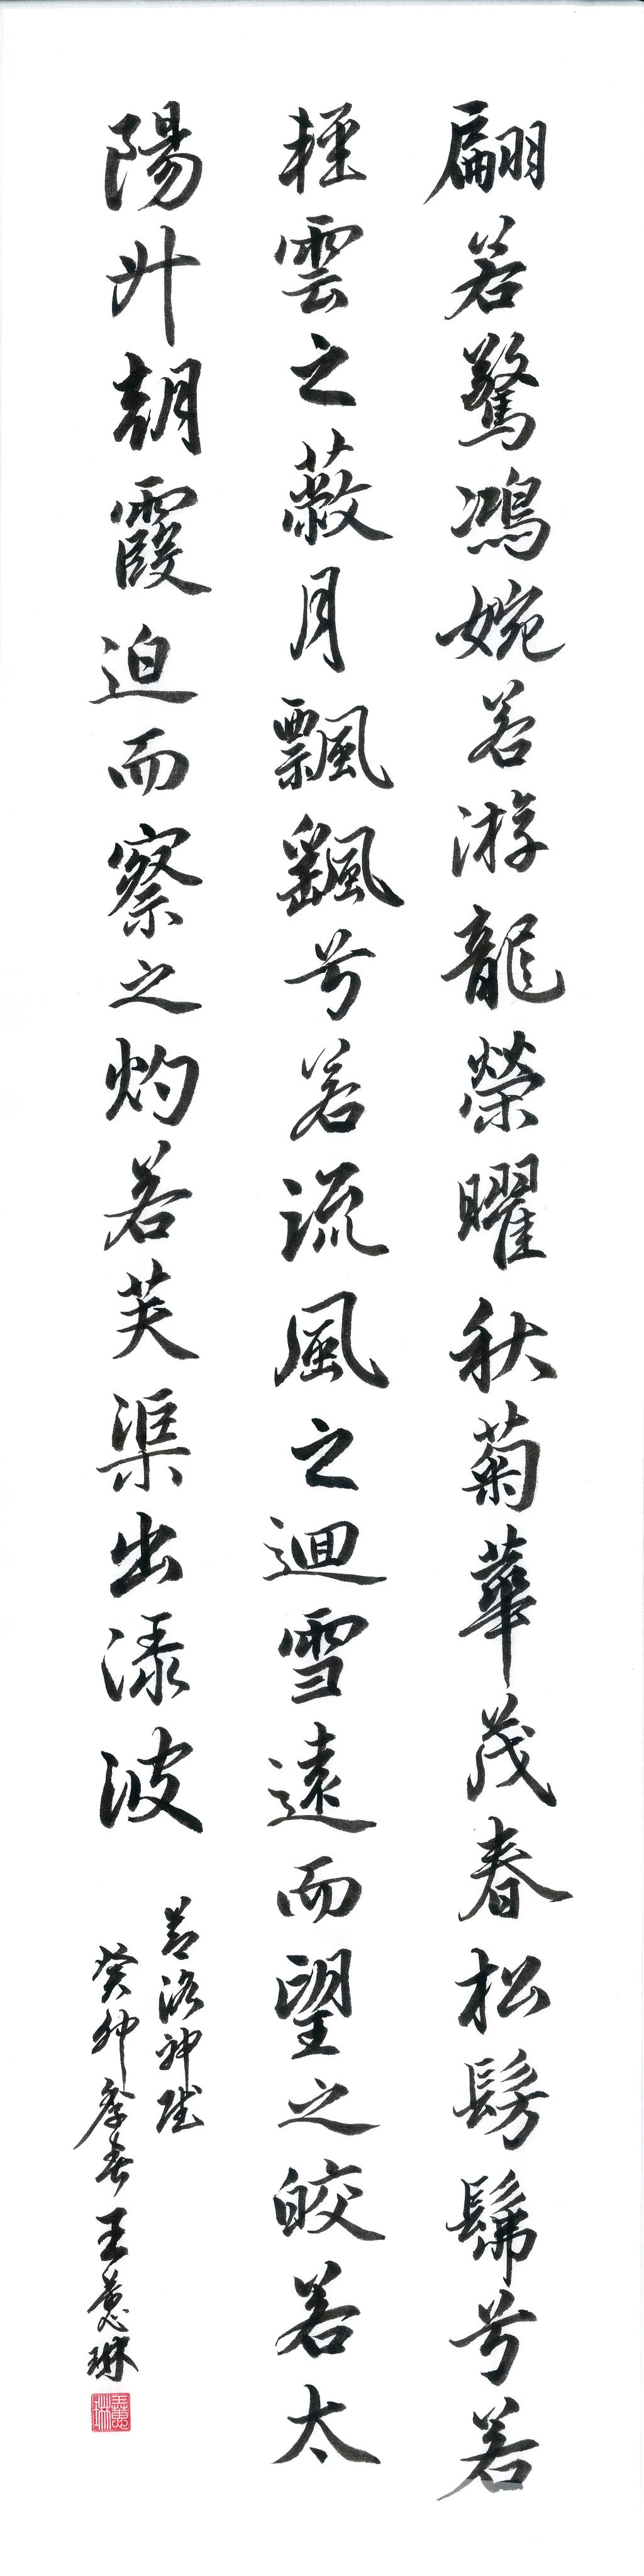 翩若驚鴻婉若游龍榮曜秋菊華茂春松髣髴兮若
輕雲之蔽月飄颻兮若流風之迴雪遠而望之皎若太
陽升朝霞迫而察之灼若芙渠出淥波
洛神賦
癸卯季春王蕙琳